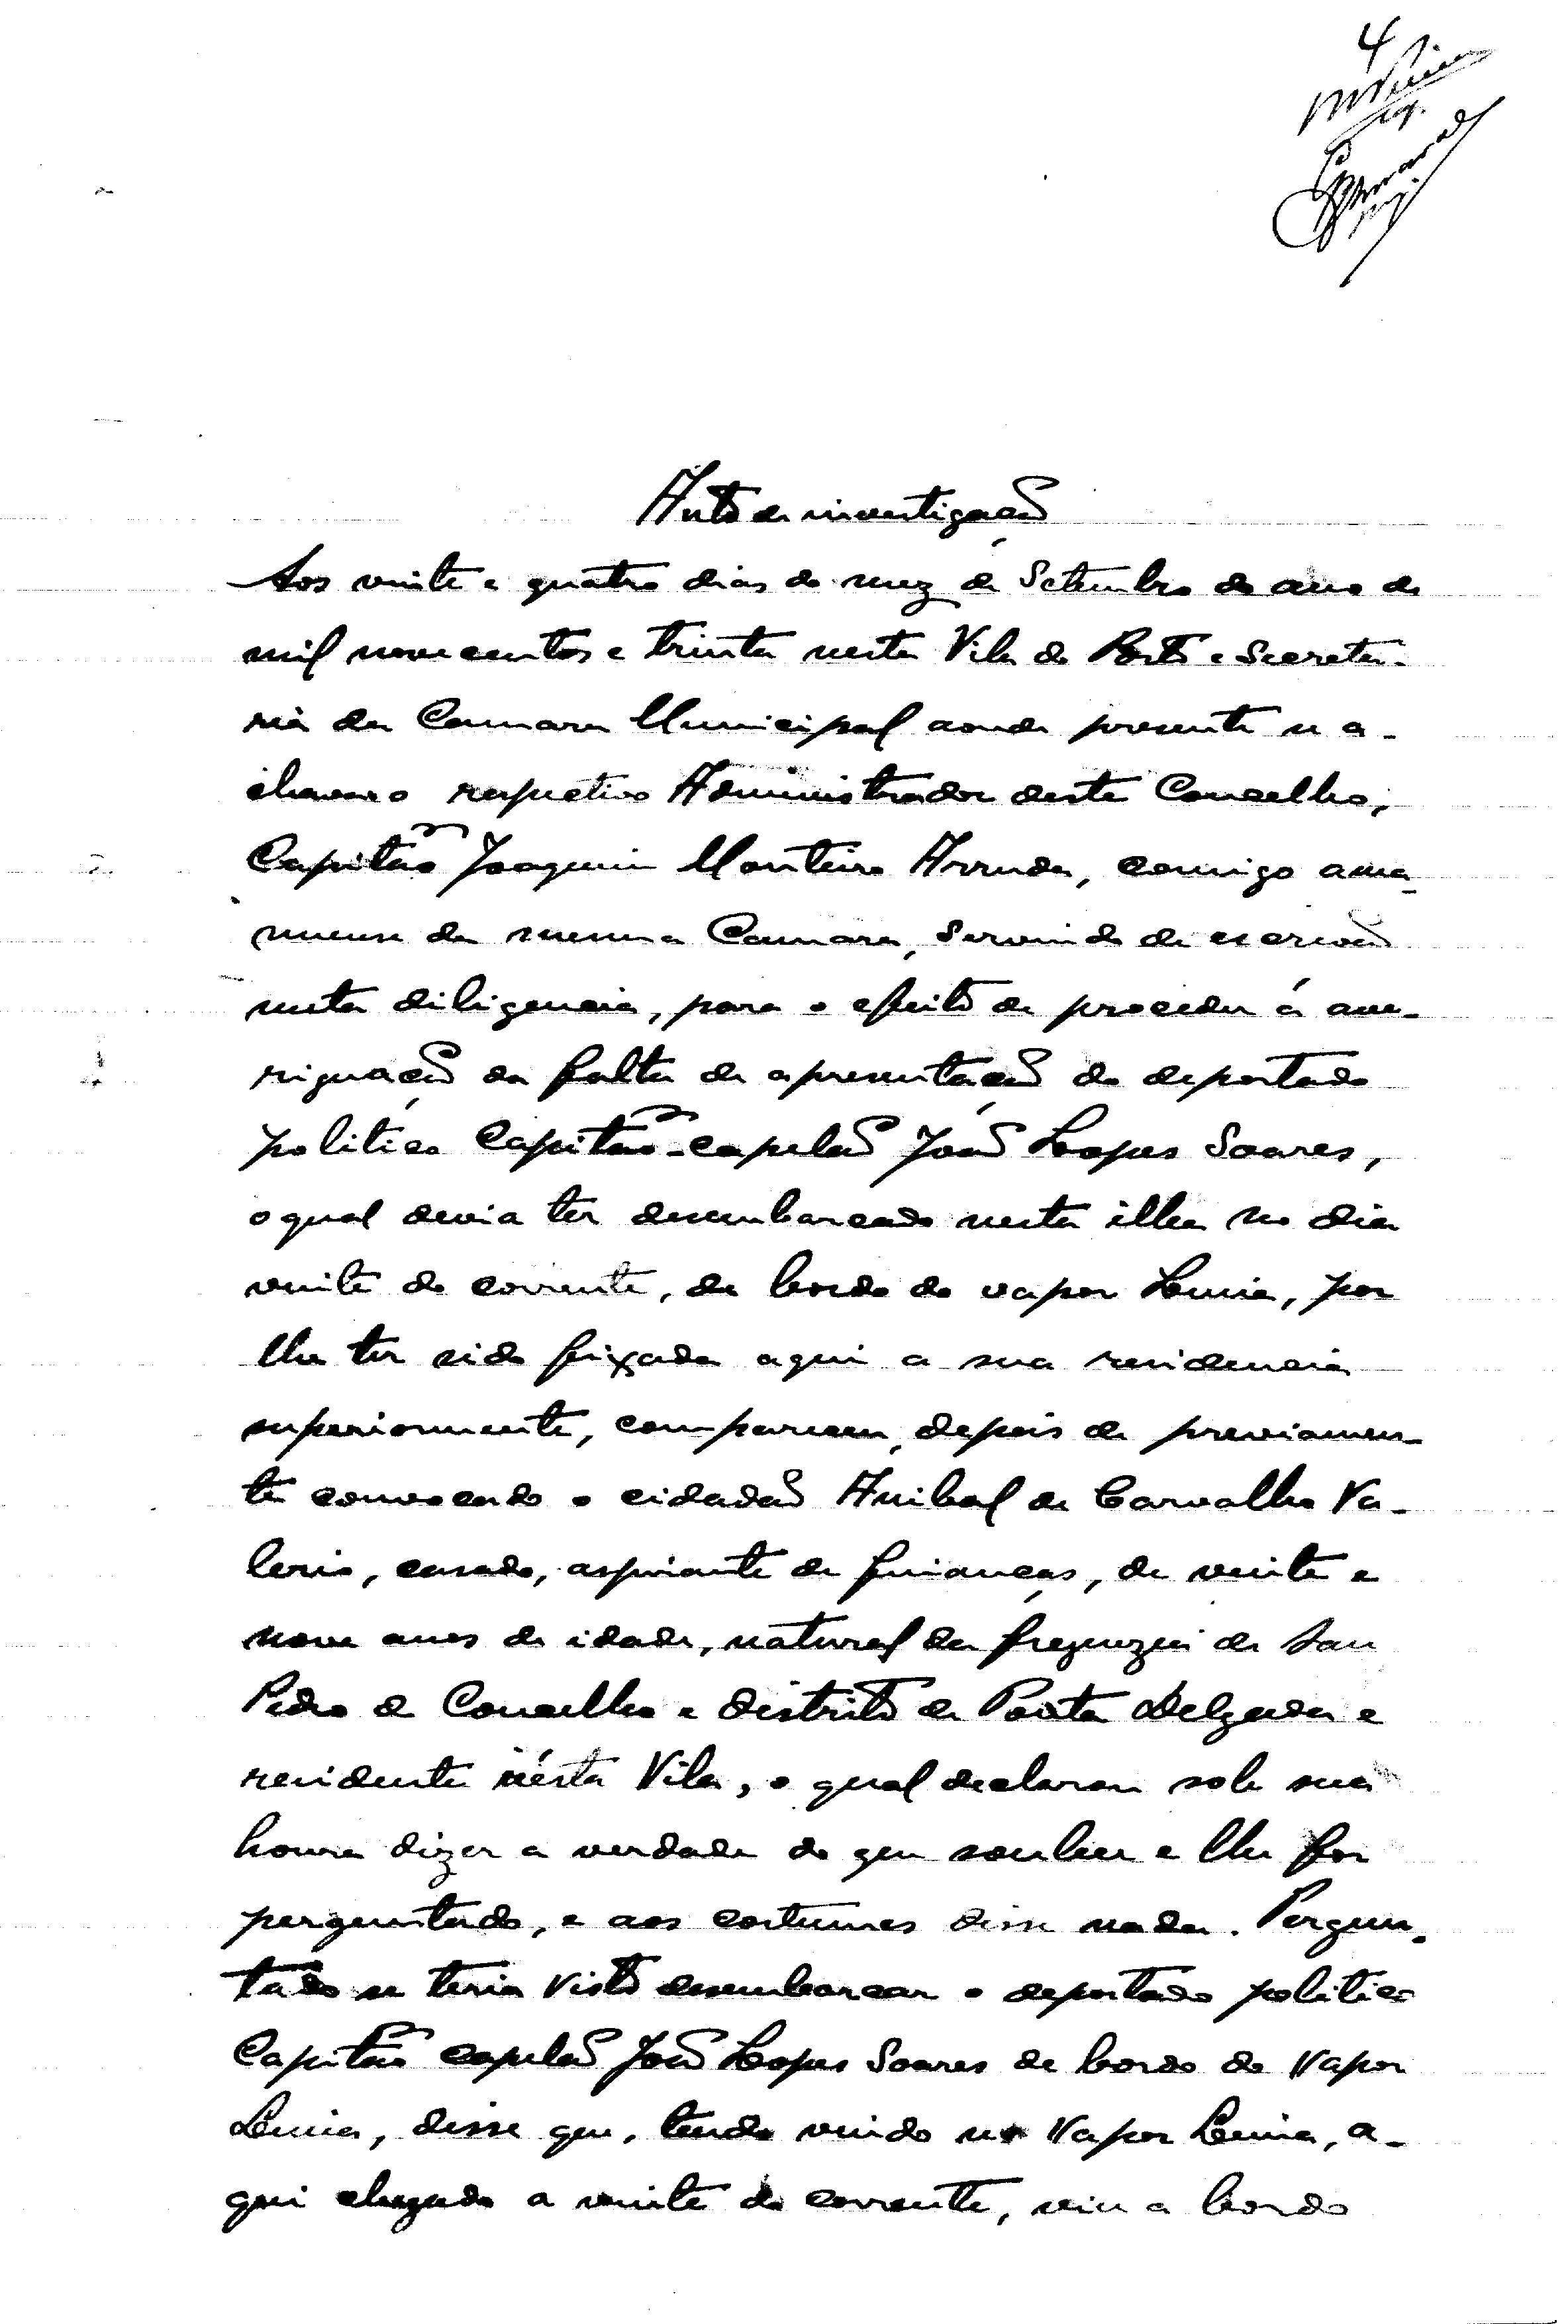 4
Auto de investigação
Aos vinte e quatro dias do mez de Setembro do ano de
mil novecentos e trinta nesta Vila do Porto e Secreta-
ria da Camara Municipal aonde presente se a-
chava o respectivo Administrador deste Concelho,
Capitão Joaquim Monteiro Arruda, comigo ama-
nuense da mesma Camara, servindo de escrivão
nesta diligencia, para o efeito de proceder á ave-
riguação da falta de apresentação do deportado
politico Capitão-capelão João Lopes Soares,
o qual devia ter desembarcado nesta ilha no dia
vinte do corrente, de bordo do vapor Lima, por
lhe ter sido feixada aqui a sua residencia
superiormente, compareceu, depois de previamen-
te convocado o cidadão Anibal de Carvalho Va-
lerio, casado, aspirante de finanças, de vinte e
nove anos de idade, natural da freguezia de San
Pedro do Concelho e distrito de Ponta Delgada e
residente nésta Vila, o qual declarou sob sua
honra dizer a verdade do que souber e lhe for
perguntado, e aos costumes disse nada. Pergun-
tado se teria visto desembarcar o deportado politico
Capitão capelão João Lopes Soares de bordo do Vapor
Lima, disse que, tendo vindo no Vapor Lima, a-
qui chegado a vinte do corrente, viu a bordo